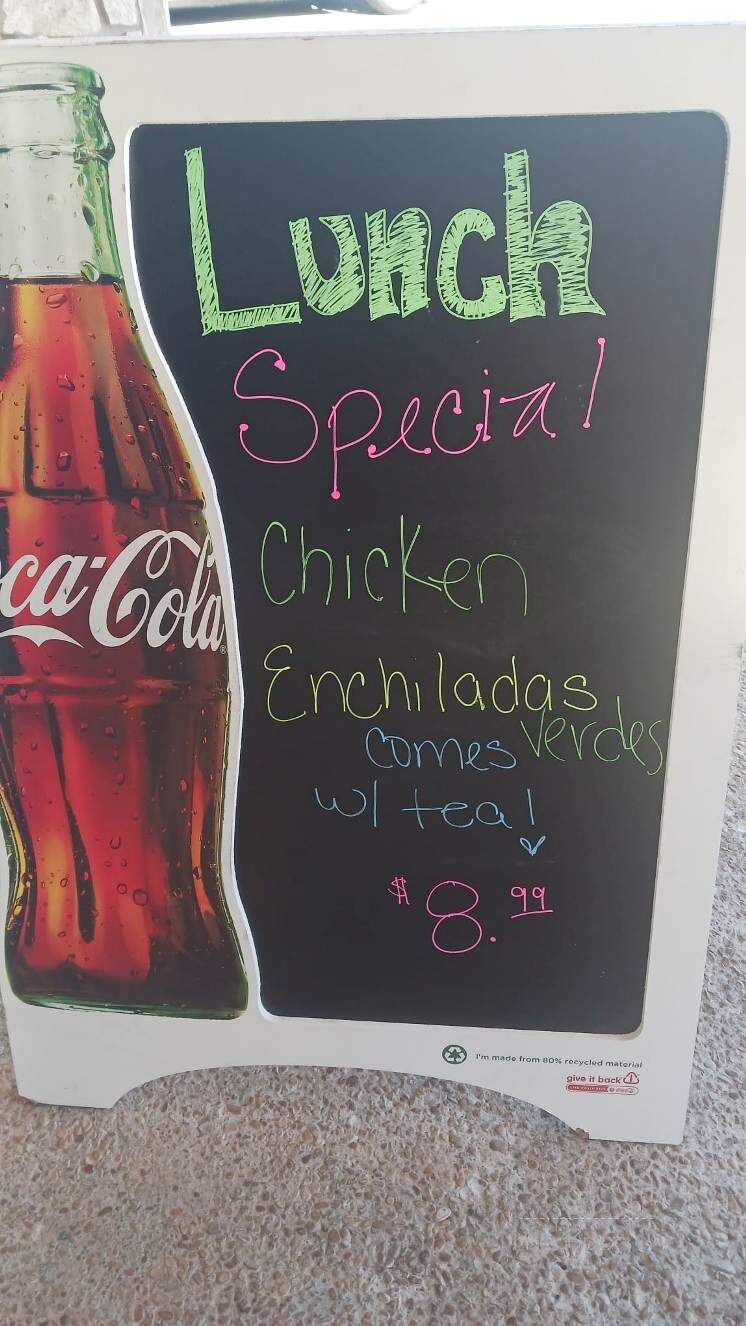 Lunch
Special
Chicken
Enchiladas
verdes
comes
w/ tea!
$8.99
ca-Cola
I'm made from 80% recycled material
give it back